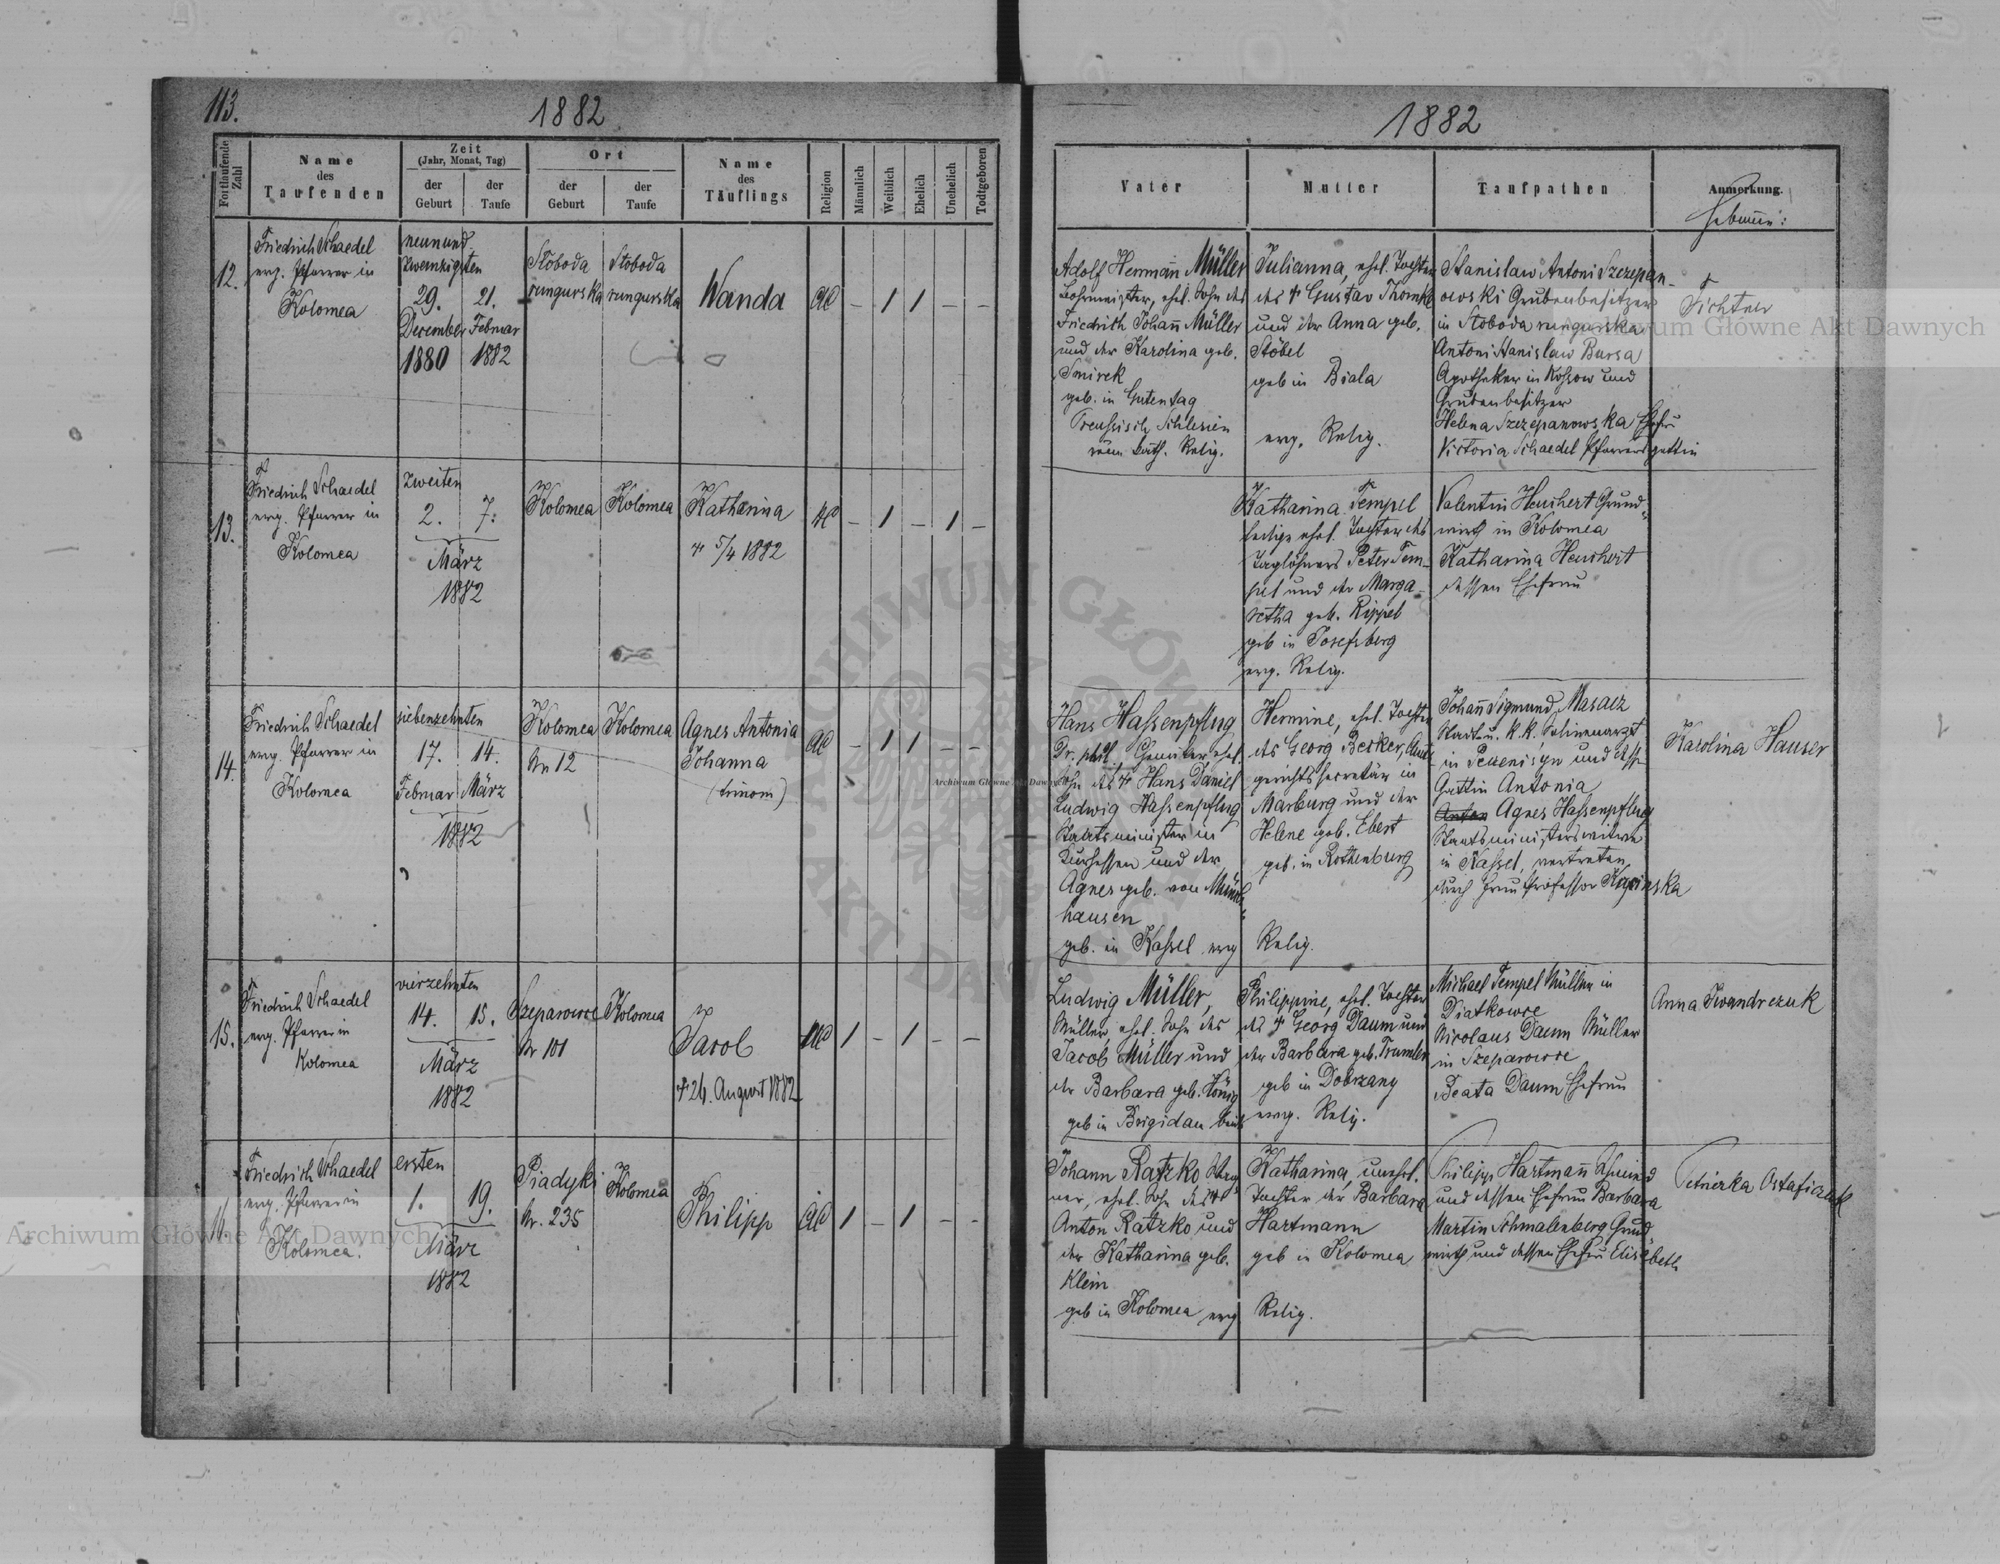 113.
1882
Fortlaufende Zahl
Name des Taufenden
Zeit
(Jahr, Monat, Tag)
der Geburt
der Taufe
Ort
der Geburt
der Taufe
Name des Täuflings
Religion
Männlich
Weiblich
Ehelich
Unehelich
Todtgeboren
12.
Friedrich Schaedel
evg. Pfarrer in
Kolomea
neunund
zwanzigsten
29.
December
1880
21.
Februar
1882
Sloboda
rungurska
Sloboda
rungurska
Wanda
AC
– 1 1 – –
13.
Friedrich Schaedel
evg. Pfarrer in
Kolomea
zweiten
2. 7.
März
1882
Kolomea
Kolomea
Katharina
† 5/4 1882
AC
– 1 – 1 –
14.
Friedrich Schaedel
evg. Pfarrer in
Kolomea
siebzehnten
17. 14.
Februar März
1882
Kolomea
Nr 12
Kolomea
Agnes Antonia
Johanna
(trinom)
AC
– 1 1 – –
15.
Friedrich Schaedel
evg. Pfarrer in
Kolomea
vierzehnten
14. 15.
März
1882
Szeparowce
Nr 101
Kolomea
Jacob
† 26. August 1882
AC
1 – 1 – –
16.
Friedrich Schaedel
evg. Pfarrer in
Kolomea.
ersten
1. 19.
März
1882
Piadyki
Nr. 235
Kolomea
Philipp
AC
1 – 1 – –
1882
Vater
Mutter
Taufpathen
Anmerkung.
Hebamme:
Adolf Hermañ Müller
Bohrmeister, ehel. Sohn des
Friedrich Johañ Müller
und der Karolina geb.
Smirek
geb. in Gutentag
Preussisch Schlesien
röm. kath. Relig.
Julianna, ehel. Tochter
des † Gustav Thomke
und der Anna geb.
Stöbel
geb in Biala
evg. Relig.
Stanislaw Antoni Szczepan-
owski Grubenbesitzer
in Sloboda rungurska
Antoni Stanislaw Bursa
Apotheker in Kossow und
Grubenbesitzer
Helena Szczepanowska Ehefrau
Victoria Schaedel Pfarrersgattin
†
Fichtner
Katharina Tempel
ledige ehel. Tochter des
Taglöhners Peter Tem-
pel und der Marga-
retha geb. Rippel
geb in Josefsberg
evg. Relig.
Valentin Heuchert Grund-
wirth in Kolomea
Katharina Heuchert
dessen Ehefrau
Hans Hassenpflug
Dr. phil. Chemiker, ehel.
Sohn des † Hans Daniel
Ludwig Hassenpflug
Staatsminister in
Kurhessen und der
Agnes geb. von Münch-
hausen
geb. in Kassel evg
Hermine, ehel. Tochter
des Georg Becker, Amts
gerichtssecretär in
Marburg und der
Helene geb. Ebert
geb. in Rothenburg
Relig.
Johañ Sigmund Masacz
Stadt u. k. k. Salinenarzt
in Peczeniżyn und desse
Gattin Antonia
Anton Agnes Hassenpflug
Staatsministerswitwe
in Kassel, vertreten
durch Frau Professor Kapinska
Karolina Hauser
Ludwig Müller,
Müller, ehel. Sohn des
Jacob Müller und
der Barbara geb. König
geb in Brigidau beide
Philippine, ehel. Tochter
des † Georg Daum und
der Barbara geb. Trumler
geb in Dobrzany
evg. Relig.
Michael Tempel Müller in
Diatkowce
Nicolaus Daum Müller
in Szeparowce
Beata Daum Ehefrau
Anna Iwandrczuk
Johann Ratzko Wag-
ner, ehel. Sohn des †
Anton Ratzko und
der Katharina geb.
Klein
geb in Kolomea evg
Katharina, unehel.
Tochter der Barbara
Hartmann
geb in Kolomea
Relig.
Philipp Hartmañ Schmied
und dessen Ehefrau Barbara
Martin Schmalenberg Grund
wirth und dessen Ehefrau Elisabeth
Ostaficzuk
Archiwum Główne Akt Dawnych
Archiwum Główne Akt Dawnych
Archiwum Główne Akt Dawnych
ARCHIWUM GŁÓWNE AKT DAWNYCH